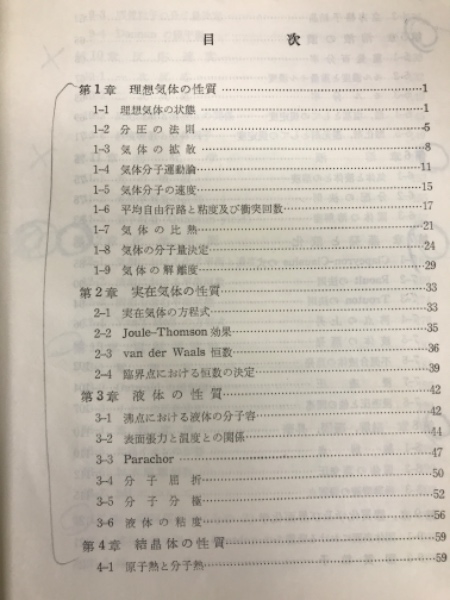 目 次
第1章 理想気体の性質 1
1-1 理想気体の状態 1
1-2 分圧の法則 5
1-3 気体の拡散 8
1-4 気体分子運動論 11
1-5 気体分子の速度 15
1-6 平均自由行路と粘度及び衝突回数 17
1-7 気体の比熱 21
1-8 気体の分子量決定 24
1-9 気体の解離度 29
第2章 実在気体の性質 33
2-1 実在気体の方程式 33
2-2 Joule-Thomson 効果 35
2-3 van der Waals 恒数 36
2-4 臨界点における恒数の決定 39
第3章 液体の性質 42
3-1 沸点における液体の分子容 42
3-2 表面張力と温度との関係 44
3-3 Parachor 47
3-4 分子屈折 50
3-5 分子分極 52
3-6 液体の粘度 56
第4章 結晶体の性質 59
4-1 原子熱と分子熱 59